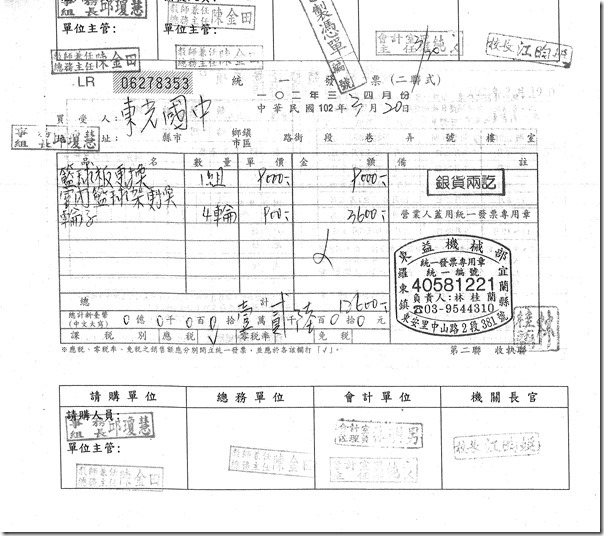 組長 邱瓊慧
教師兼任總務主任 陳金田
單位主管:
教師兼任總務主任 陳金田
製憑單編號
校長 江
LR 06278353 統一發票(二聯式)
一〇二年三、四月份
中華民國102年3月20日
買受人: 東光國中
地址: 縣市 鄉鎮市區 路街 段 巷 弄 號 樓 室
事務組長 邱瓊慧
品名 數量 單價 金額 備註
籃球板更換 1組 9000.- 9000.-
籃球架更換
輪子 4輪 900.- 3600.-
銀貨兩訖
營業人蓋用統一發票專用章
東益機械部
統一發票專用章
統一編號
40581221
負責人:林桂蘭
☎03-9544310
宜蘭縣羅東鎮東安里中山路2段381號
總計 12600.-
總計新臺幣(中文大寫) 0億0千0百0拾壹萬貳千陸百0拾0元
課稅別 應稅 ✓ 零稅率 免稅
※應稅、零稅率、免稅之銷售額應分別開立統一發票,並應於各該欄打「✓」。
第二聯 收執聯
請購單位 總務單位 會計單位 機關長官
請購人員:
事務組長 邱瓊慧
單位主管:
教師兼任總務主任 陳金田
教師兼任總務主任 陳金田
校長 江